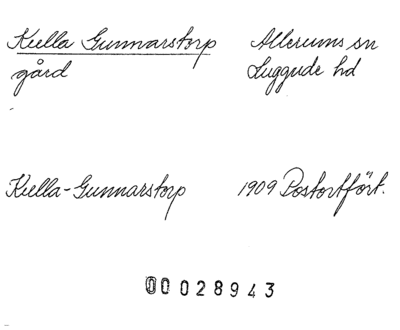 Kulla Gunnarstorp Allerums sn
gård Luggude hd
Kulla-Gunnarstorp 1909 Postortfört.
00028943